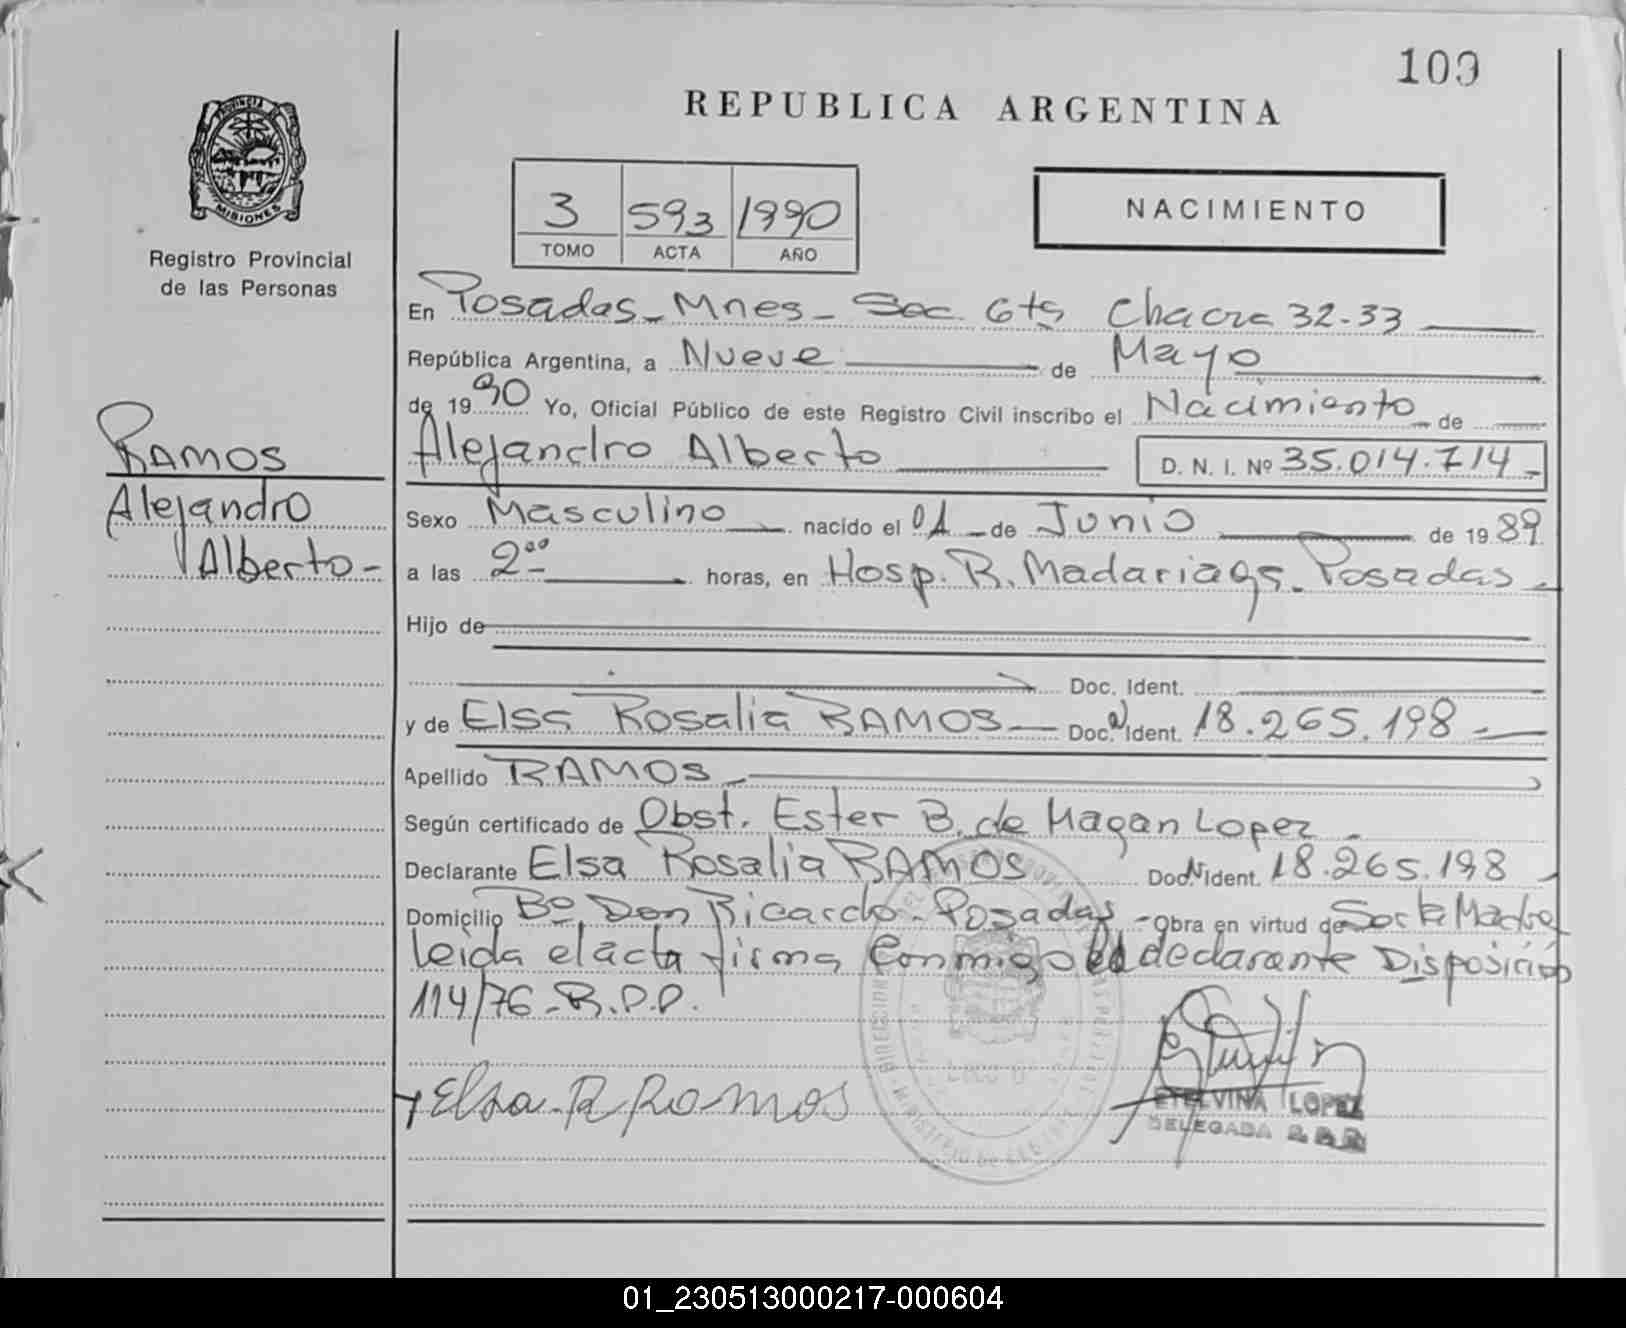 109
REPUBLICA ARGENTINA
PROVINCIA
MISIONES
Registro Provincial
de las Personas
3 593 1990
TOMO ACTA AÑO
NACIMIENTO
En Posadas - Mnes - Sec. 6ta Chacra 32-33
República Argentina, a Nueve de Mayo
de 1990 Yo, Oficial Público de este Registro Civil inscribo el Nacimiento de
Alejandro Alberto D. N. I. Nº 35.014.714-
RAMOS
Alejandro
Alberto-
Sexo Masculino nacido el 01 de Junio de 1989
a las 2 00 horas, en Hosp. R. Madariaga - Posadas -
Hijo de
Doc. Ident.
y de Elsa Rosalia RAMOS Doc. Ident. 18.265.198-
Apellido RAMOS
Según certificado de Obst. Ester B. de Magan Lopez -
Declarante Elsa Rosalia RAMOS Doc. Ident. 18.265.198-
Domicilio Bº Don Ricardo - Posadas - Obra en virtud de Ser la Madre
leida el acta firma Conmigo la declarante Disposición
114/76-R.P.P.
Elsa R Ramos
ETELVINA LOPEZ
DELEGADA
01_230513000217-000604